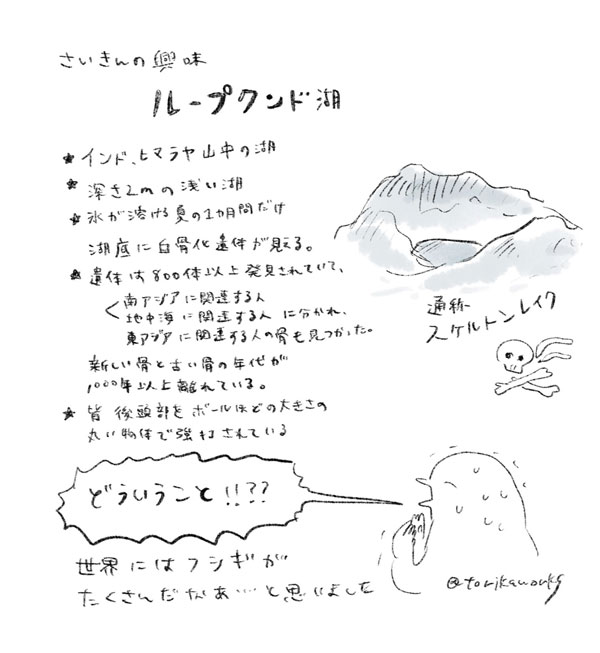 さいきんの興味
ループクンド湖
★インド、ヒマラヤ山中の湖
★深さ2mの浅い湖
★氷が溶ける夏の1カ月間だけ
湖底に白骨化遺体が見える。
★遺体は800体以上発見されていて、
南アジアに関連する人
地中海に関連する人 に分かれ、
東アジアに関連する人の骨も見つかった。
新しい骨と古い骨の年代が
1000年以上離れている。
★皆 後頭部をボールほどの大きさの
丸い物体で強打されている
通称
スケルトンレイク
どういうこと!!??
世界にはフシギが
たくさんだなあ…と思いました
@torikaworks